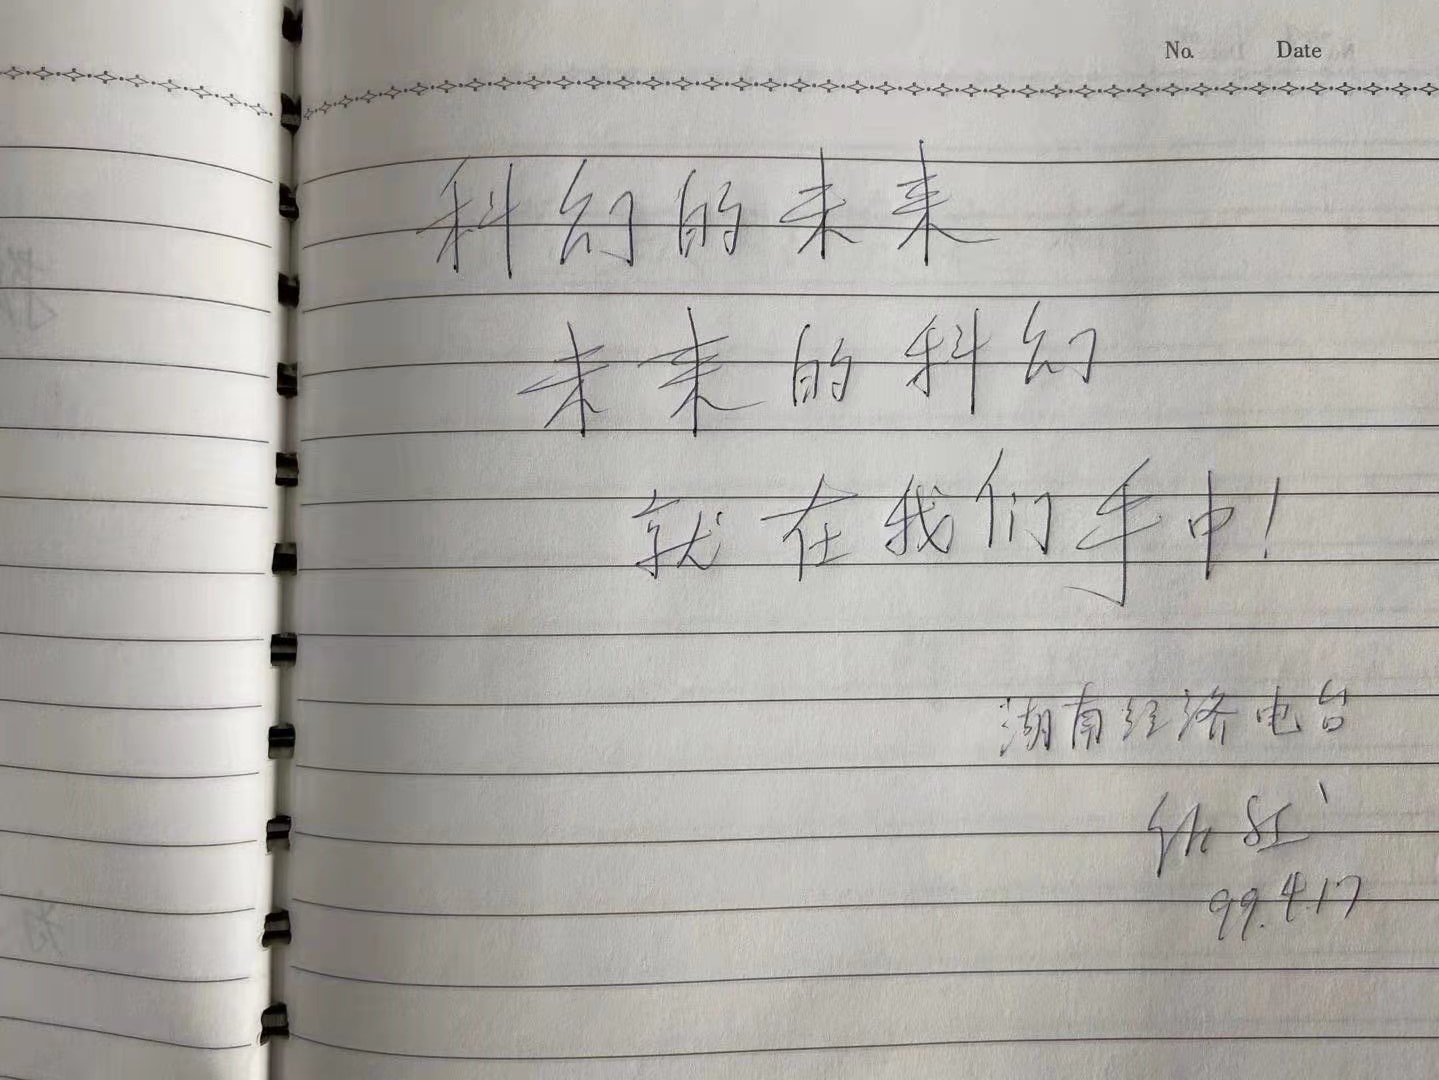 No. Date
科幻的未来
未来的科幻
就在我们手中!
湖南经济电台
99.4.17